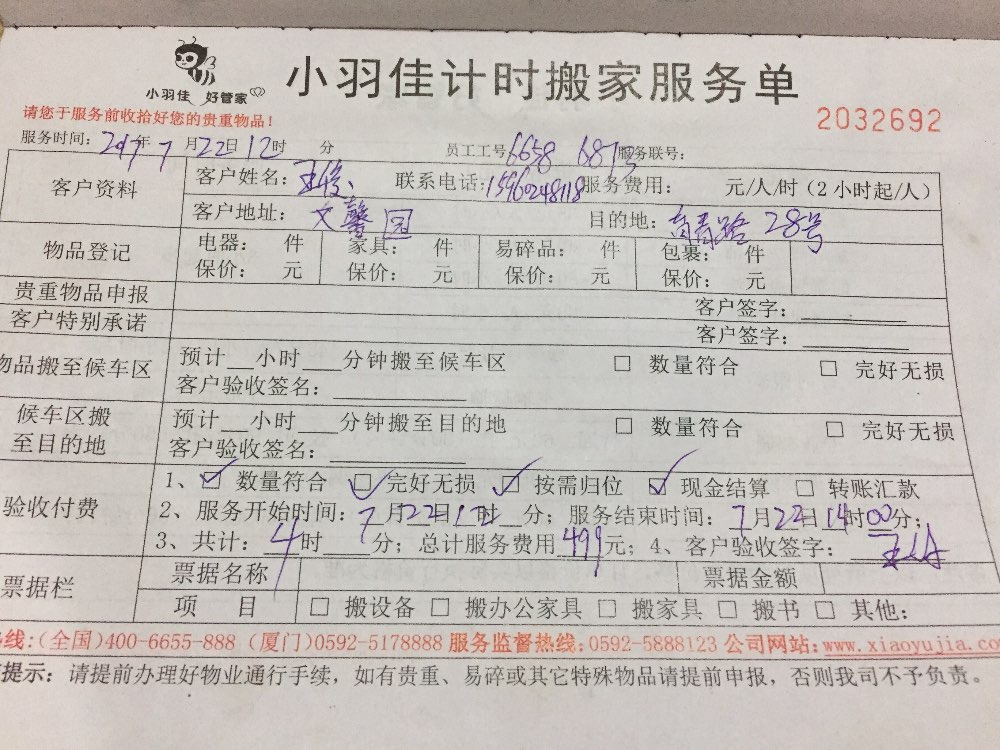 小羽佳 好管家
小羽佳计时搬家服务单
2032692
请您于服务前收拾好您的贵重物品！
服务时间：2017年7月22日12时 分 员工工号6658 687号服务联号：
客户资料 客户姓名： 联系电话：15960248118服务费用： 元/人/时（2小时起/人）
客户地址：文馨园 目的地： 28号
物品登记 电器： 件 家具： 件 易碎品： 件 包裹： 件
保价： 元 保价： 元 保价： 元 保价： 元
贵重物品申报 客户签字：
客户特别承诺 客户签字：
物品搬至候车区 预计 小时 分钟搬至候车区 □ 数量符合 □ 完好无损
客户验收签名：
候车区搬至目的地 预计 小时 分钟搬至目的地 □ 数量符合 □ 完好无损
客户验收签名：
验收付费 1、☑ 数量符合 ☑ 完好无损 ☑ 按需归位 ☑ 现金结算 □ 转账汇款
2、服务开始时间：7月22日12时 分；服务结束时间：7月22日14时00分；
3、共计：4时 分；总计服务费用499元；4、客户验收签字：
票据栏 票据名称 票据金额
项 目 □ 搬设备 □ 搬办公家具 □ 搬家具 □ 搬书 □ 其他：
线：(全国)400-6655-888 (厦门)0592-5178888 服务监督热线：0592-5888123 公司网站：www.xiaoyujia.co
提示：请提前办理好物业通行手续，如有贵重、易碎或其它特殊物品请提前申报，否则我司不予负责。